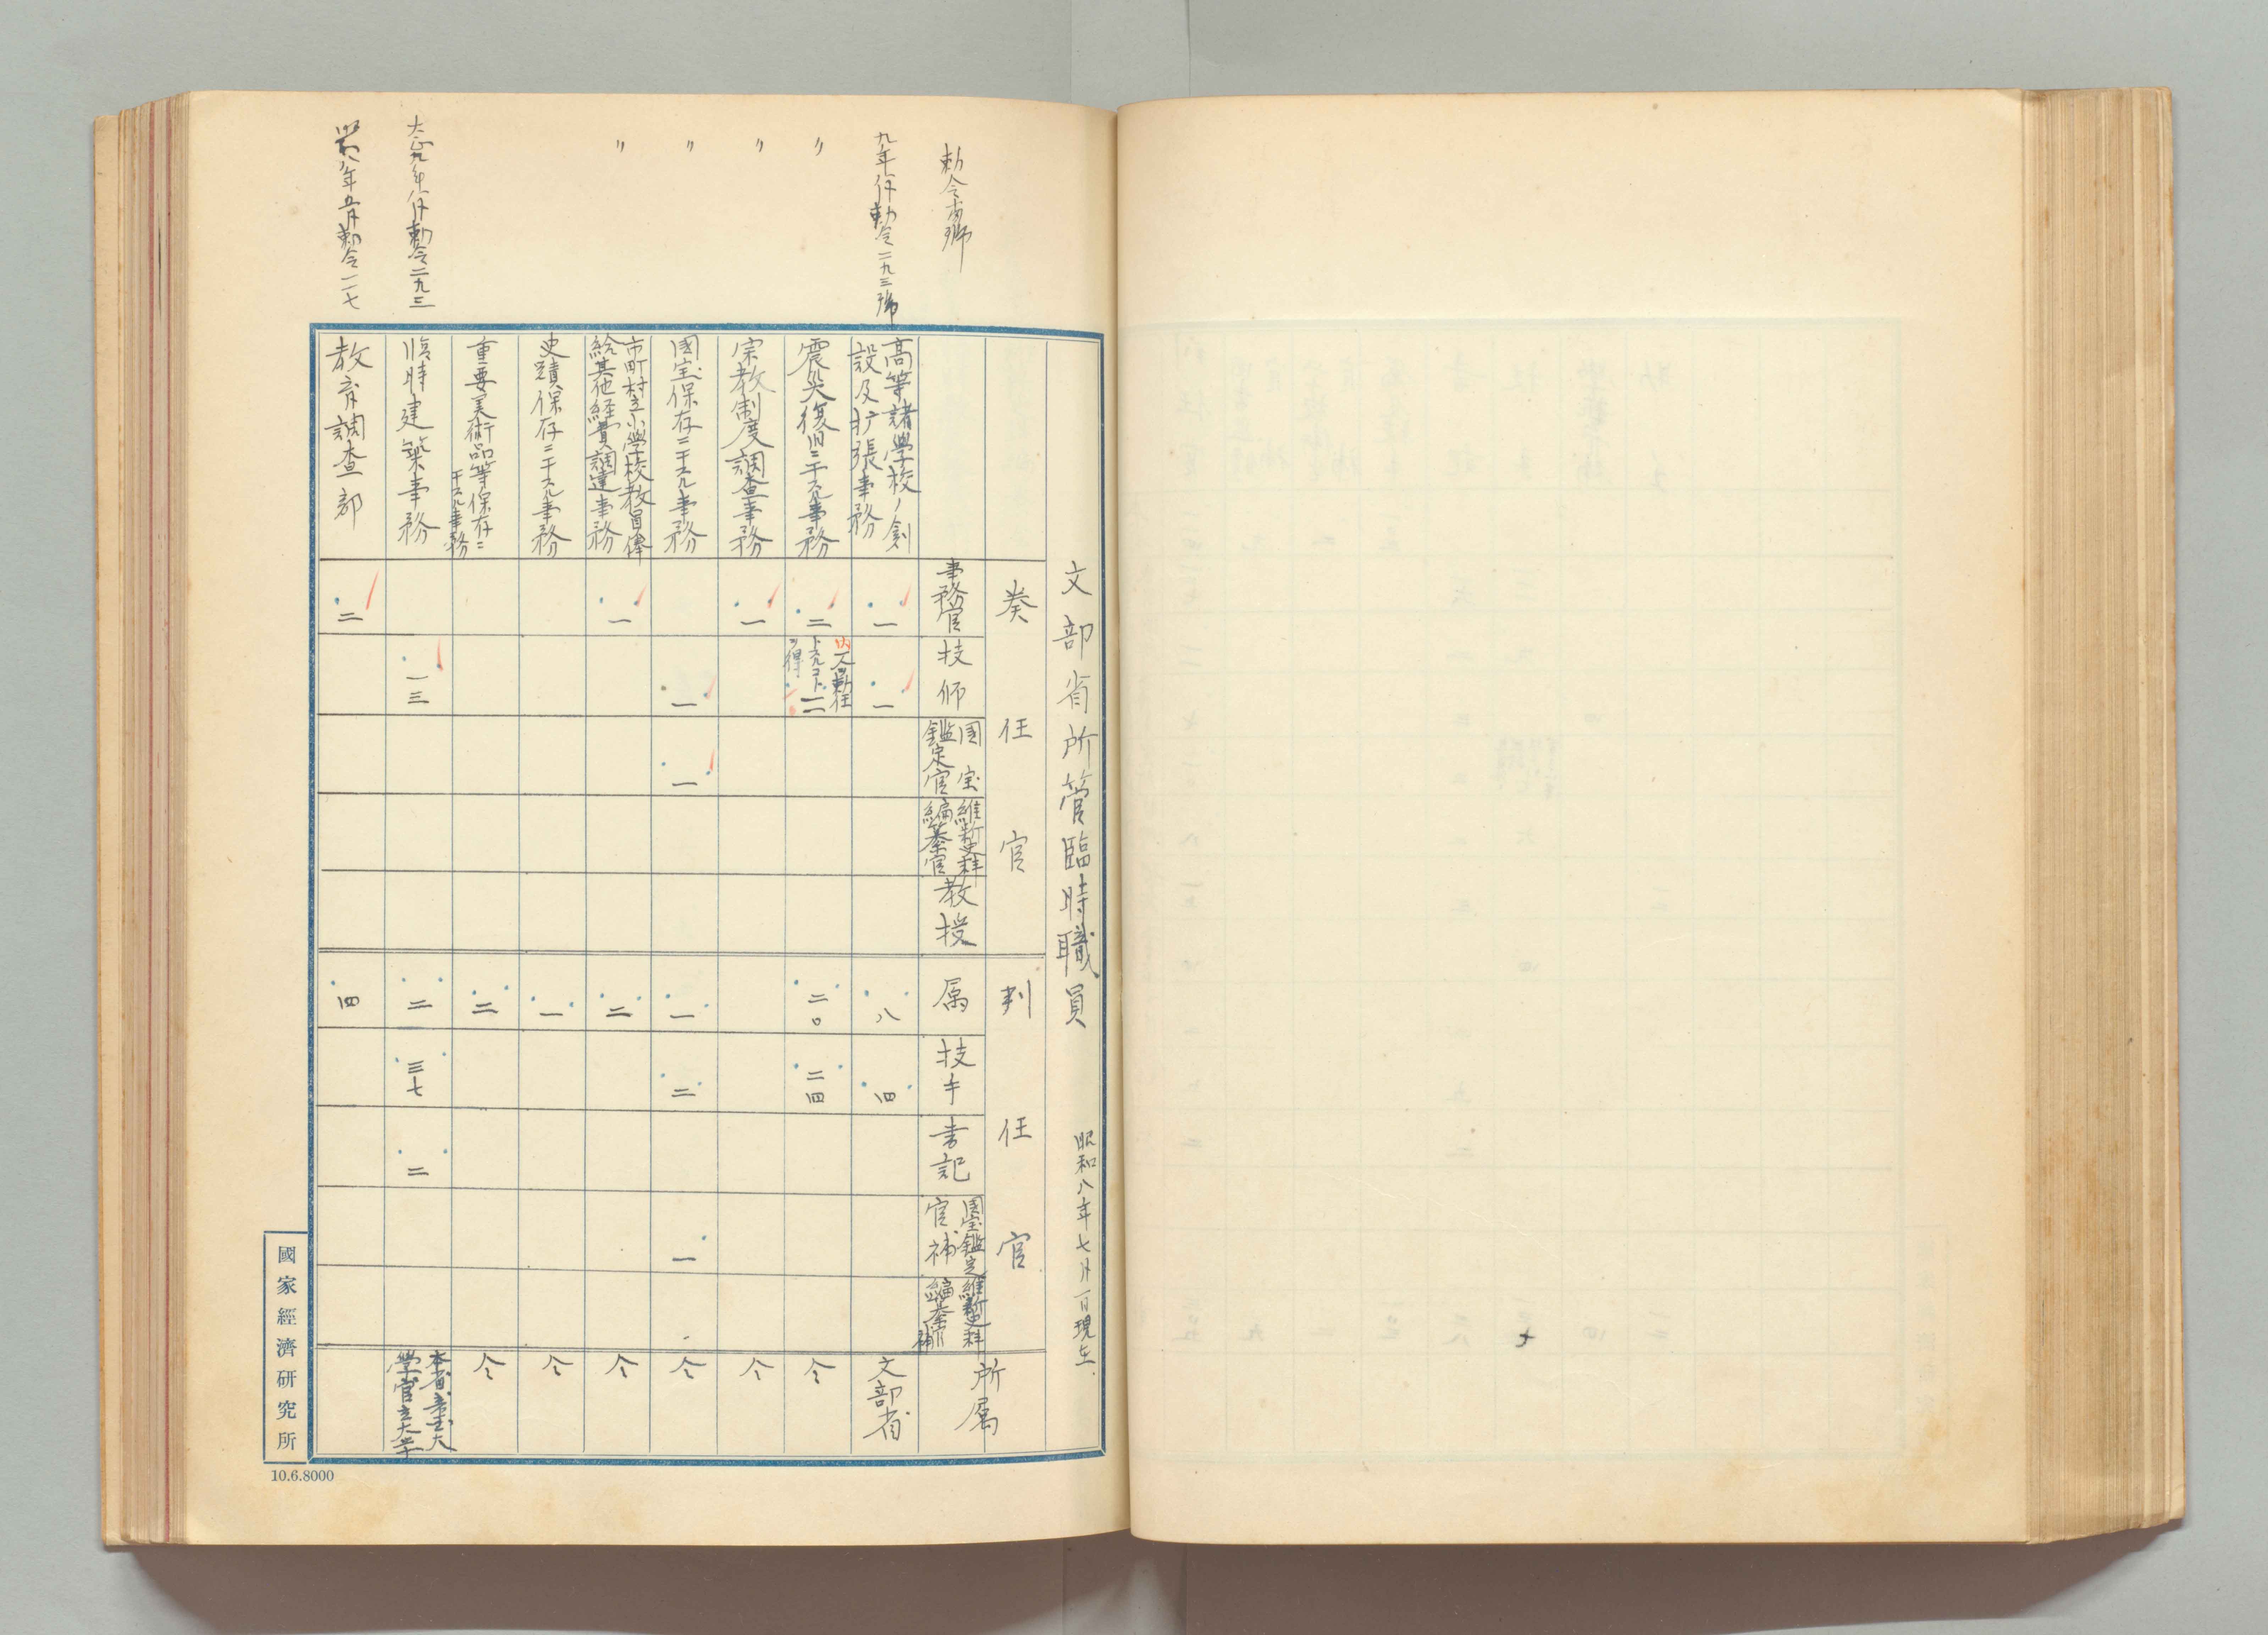 文部省所管臨時職員 昭和八年七月一日現在
奏任官
判任官
所属
事務官
技師
国宝鑑定官
維新史料編纂官
教授
属
技手
書記
国宝鑑定官補
維新史料編纂官補
勅令番號
九年仝勅令二九三號
高等諸學校ノ創設及拡張事務
一
一
八
四
文部省
〃
震災復旧ニ干スル事務
二
内一人勅任トスルコトヲ得
二
二〇
二四
仝
〃
宗教制度調査事務
一
仝
〃
國宝保存ニ干スル事務
一
一
一
二
一
仝
〃
市町村立小學校教員俸給其他経費調達事務
一
二
仝
史蹟保存ニ干スル事務
一
仝
重要美術品等保存ニ干スル事務
二
仝
大正九年仝勅令二九三
臨時建築事務
一三
二
三七
二
昭和八年五月勅令一一七
教育調査部
二
四
國家經濟研究所
10.6.8000